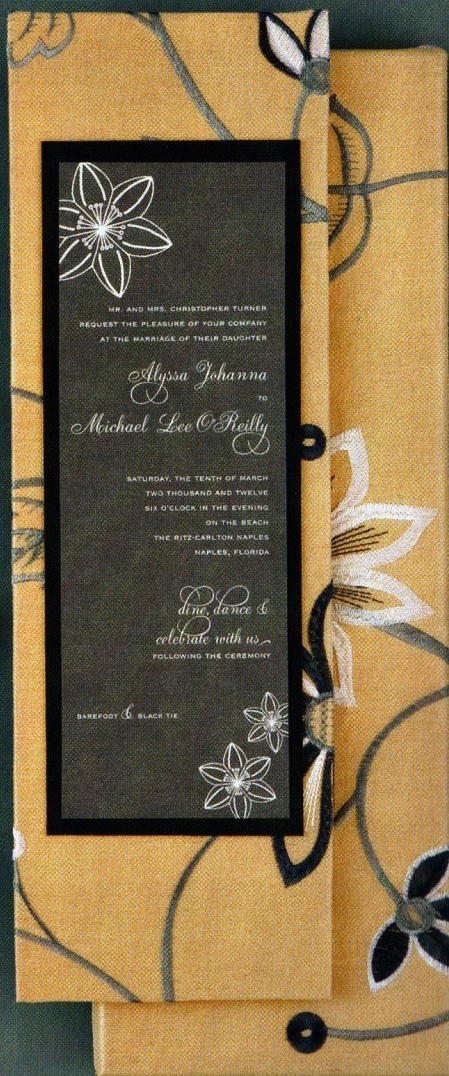 MR. AND MRS. CHRISTOPHER TURNER
REQUEST THE PLEASURE OF YOUR COMPANY
AT THE MARRIAGE OF THEIR DAUGHTER
Alyssa Johanna
TO
Michael Lee O'Reilly
SATURDAY, THE TENTH OF MARCH
TWO THOUSAND AND TWELVE
SIX O'CLOCK IN THE EVENING
ON THE BEACH
THE RITZ-CARLTON NAPLES
NAPLES, FLORIDA
dine, dance &
celebrate with us
FOLLOWING THE CEREMONY
BAREFOOT & BLACK TIE